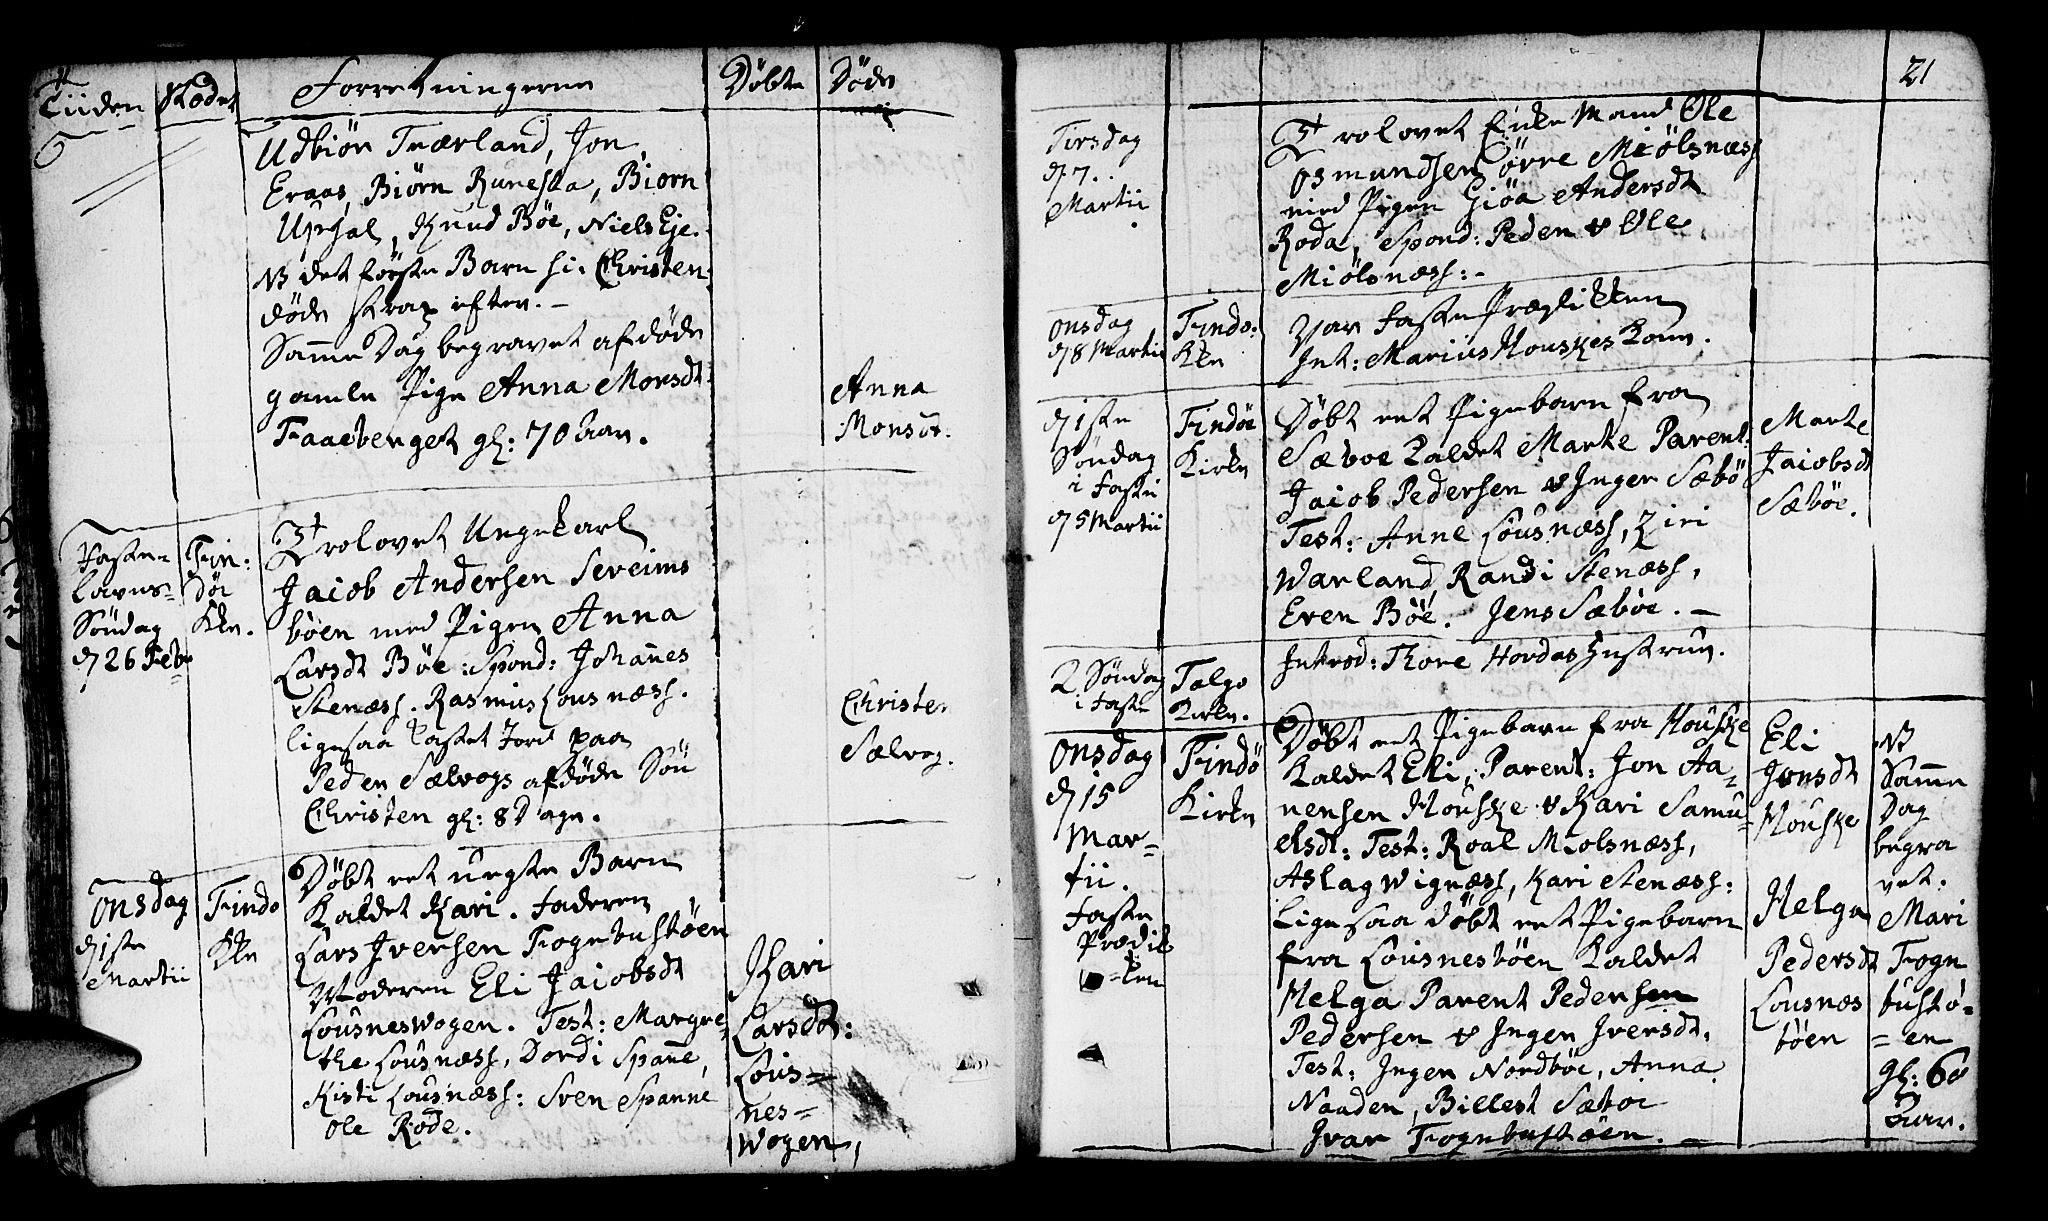 Tiiden Stædet Forretningerne Døbte Døde
Udbiön Tværland, Jon
Eraas, Biørn Runesta, Biorn
Upsal, Knud Bøe, Niels Eje.
NB det første Barn hi: Christen
døde strax efter. –
Samme Dag begravet afdøde
gamle Pige Anna Monsdt:
Faaeberget gl: 70 Aar.
Anna
Monsdt.
Faste-
lavns-
Söndag
d 26 Feb
Fin:
döe
Kke.
Trolovet Ungekarl
Jacob Andersen Sereims
böen med Pigen Anna
Larsdt Böe: Spond: Johañes
Stenæss. Rasmus Lousnæss.
ligesaa kastet Jord paa
Peder Sælvogs afdøde Sön
Christen gl: 8 Dage.
Christen
Sælvog.
Onsdag
d 1ste
Martii
Findø
Kke
Döbt eet uægte Barn
kaldet Kari. Faderen
Lars Iversen Fognbustöen
Moderen Eli Jacobsdt
Lousneswogen. Test: Margre-
the Lousnæss, Dordi Spanne,
Kisti Lousnæss: Sven Spanne
Ole Röde.
Kari
Larsdt:
Lous=
nes=
Wogen,
21
Tirsdag
d 7.
Martii
Trolovet Enke Mand Ole
Osmundsen Øvre Miölsnæss
med Pigen Giöa Andersdt
Roda, Spond: Peder & Ole
Miölsnæss: -
Onsdag
d 8 Martii
Findø
Kke
Var Faste Prædikken
Int: Marius Houskes Kone.
d 1ste
Söndag
i Faste
d 5 Martii
Findöe
Kirke
Döbt eet Pigebarn fra
Sæboe kaldet Marte Parent:
Jacob Pedersen & Inger Sæbö
Test: Anne Lousnæss, Ziri
Warland, Randi Stenæss,
Even Böe. Jens Sæböe. –
Marte
Jacobsdt
Sæböe.
2. Söndag
i Faste
Talgo
Kirke.
Introd: Thore Hordas Hustrue.
Onsdag
d 15
Mar=
tii.
Faste
Prædik
=ken
Findö
Kirke
Döbt eet Pigebarn fra Houske
kaldet Eli, Parent: Jon Aa=
nensen Houske & Kari Samu=
elsdt: Test: Roal Miolsnæss,
Aslag Wignæss, Kari Stenæss:
Ligesaa döbt eet Pigebarn
fra Lousnesböen kaldet
Helga Parent Pedersen
Pedersen & Inger Iversdt.
Test: Inger Nordböe, Anna
Naaden, Billest Sæboe
Ivar Fognbustöen. –
Eli
Jonsdt
Houske
Helga
Pedersdt
Lousnes
böen
NB
Samme
Dag
begra
vet.
Mari
Fogn
bustö=
=en
gl: 60
Aar.